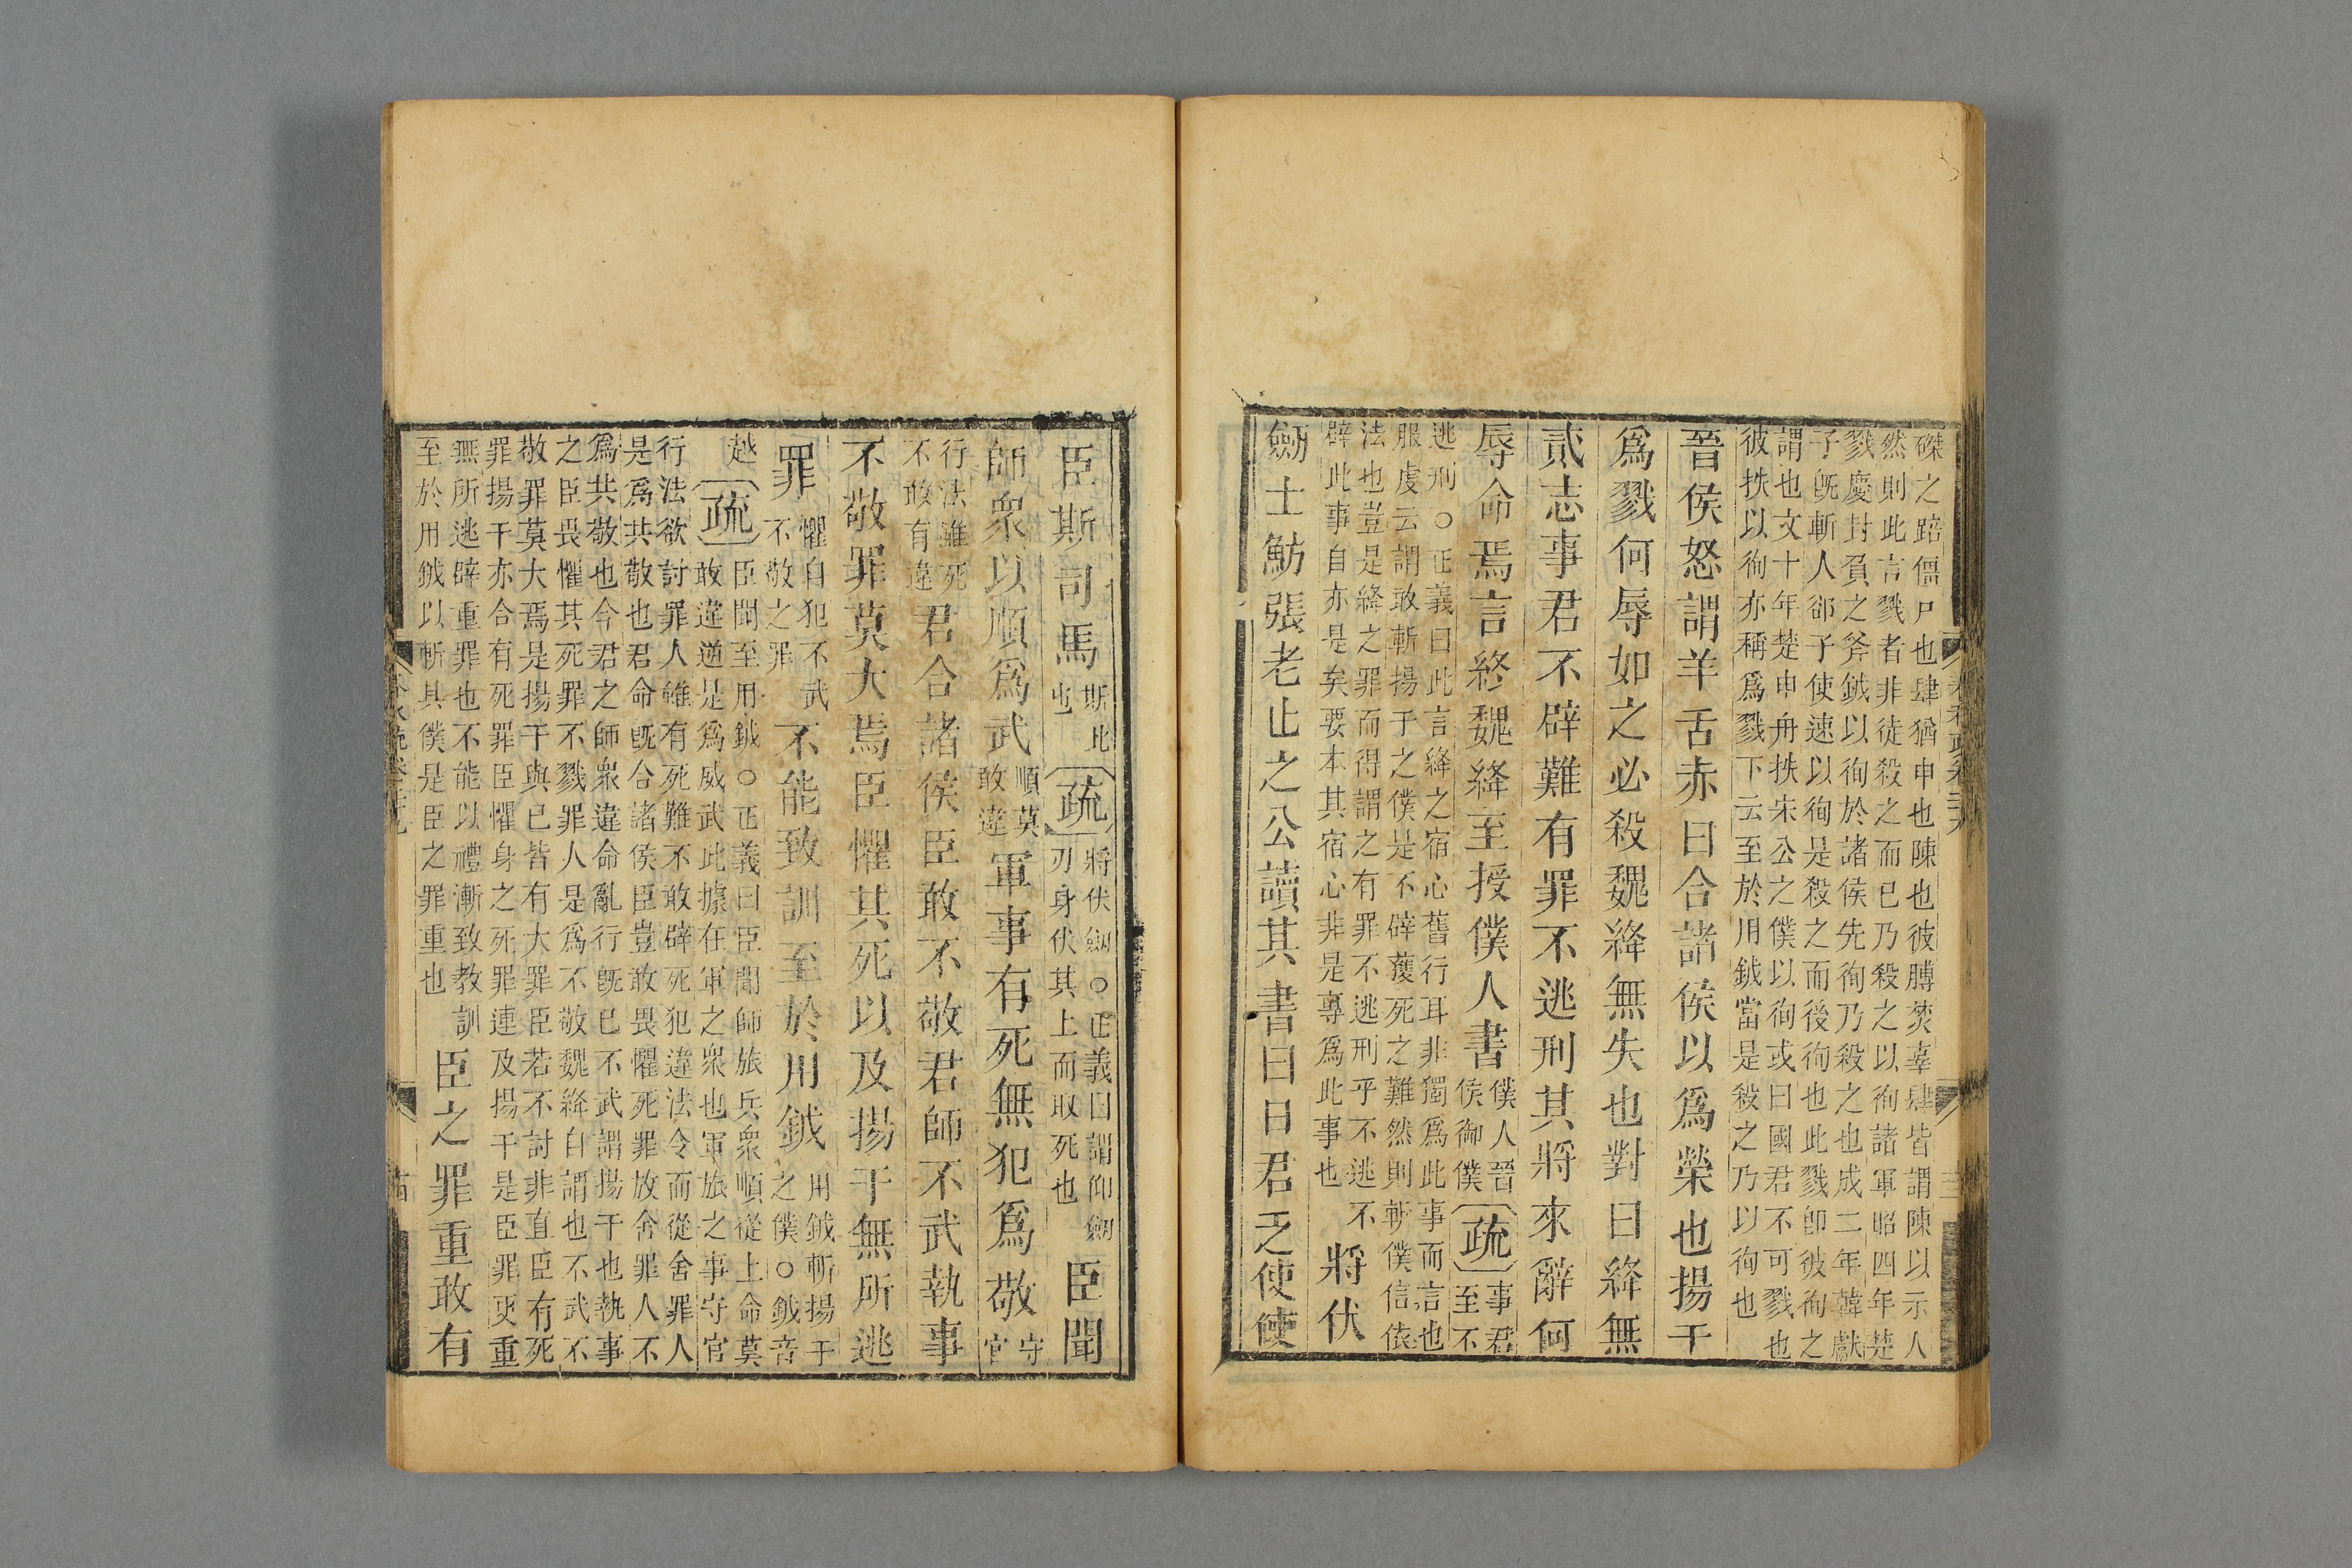 磔之踣僵尸也肆猶申也陳也彼膊焚辜肆皆謂陳以示人
然則此言戮者非徒殺之而已乃殺之以徇諸軍昭四年楚
戮慶封負之斧鉞以徇於諸侯先徇乃殺之也成二年韓獻
子旣斬人郤子使速以徇是殺之而後徇也此戮卽彼徇之
謂也文十年楚申舟抶宋公之僕以徇或曰國君不可戮也
彼抶以徇亦稱爲戮下云至於用鉞當是殺之乃以徇也
晉侯怒謂羊舌赤曰合諸侯以爲榮也揚干
爲戮何辱如之必殺魏絳無失也對曰絳無
貳志事君不辟難有罪不逃刑其將來辭何
辱命焉言終魏絳至授僕人書僕人晉侯御僕疏事君至不
逃刑○正義曰此言絳之宿心舊行耳非獨爲此事而言也
服虔云謂敢斬揚干之僕是不辟獲死之難然則斬僕信依
法也豈是絳之罪而得謂之有罪不逃刑乎不逃不
辟此事自亦是矣要本其宿心非是專爲此事也將伏
劒士魴張老止之公讀其書曰日君乏使使
臣斯司馬斯此也疏將伏劒○正義曰謂仰劒刃身伏其上而取死也臣聞
師衆以順爲武順莫敢違軍事有死無犯爲敬守官
行法雖死不敢有違君合諸侯臣敢不敬君師不武執事
不敬罪莫大焉臣懼其死以及揚干無所逃
罪懼自犯不武不敬之罪不能致訓至於用鉞用鉞斬揚干之僕○鉞音
越疏臣聞至用鉞○正義曰臣聞師旅兵衆順從上命莫
敢違逆是爲威武此據在軍之衆也軍旅之事守官
行法欲討罪人雖有死難不敢辟死犯違法令而從舍罪人
是爲共敬也君命旣合諸侯臣豈敢畏懼死罪放舍罪人不
爲共敬也今君之師衆違命亂行旣已不武謂揚干也執事
之臣畏懼其死罪不戮罪人是爲不敬魏絳自謂也不武不
敬罪莫大焉是揚干與已皆有大罪臣若不討非直臣有死
罪揚干亦合有死罪臣懼身之死罪連及揚干是臣罪更重
無所逃辟重罪也不能以禮漸致教訓
至於用鉞以斬其僕是臣之罪重也臣之罪重敢有